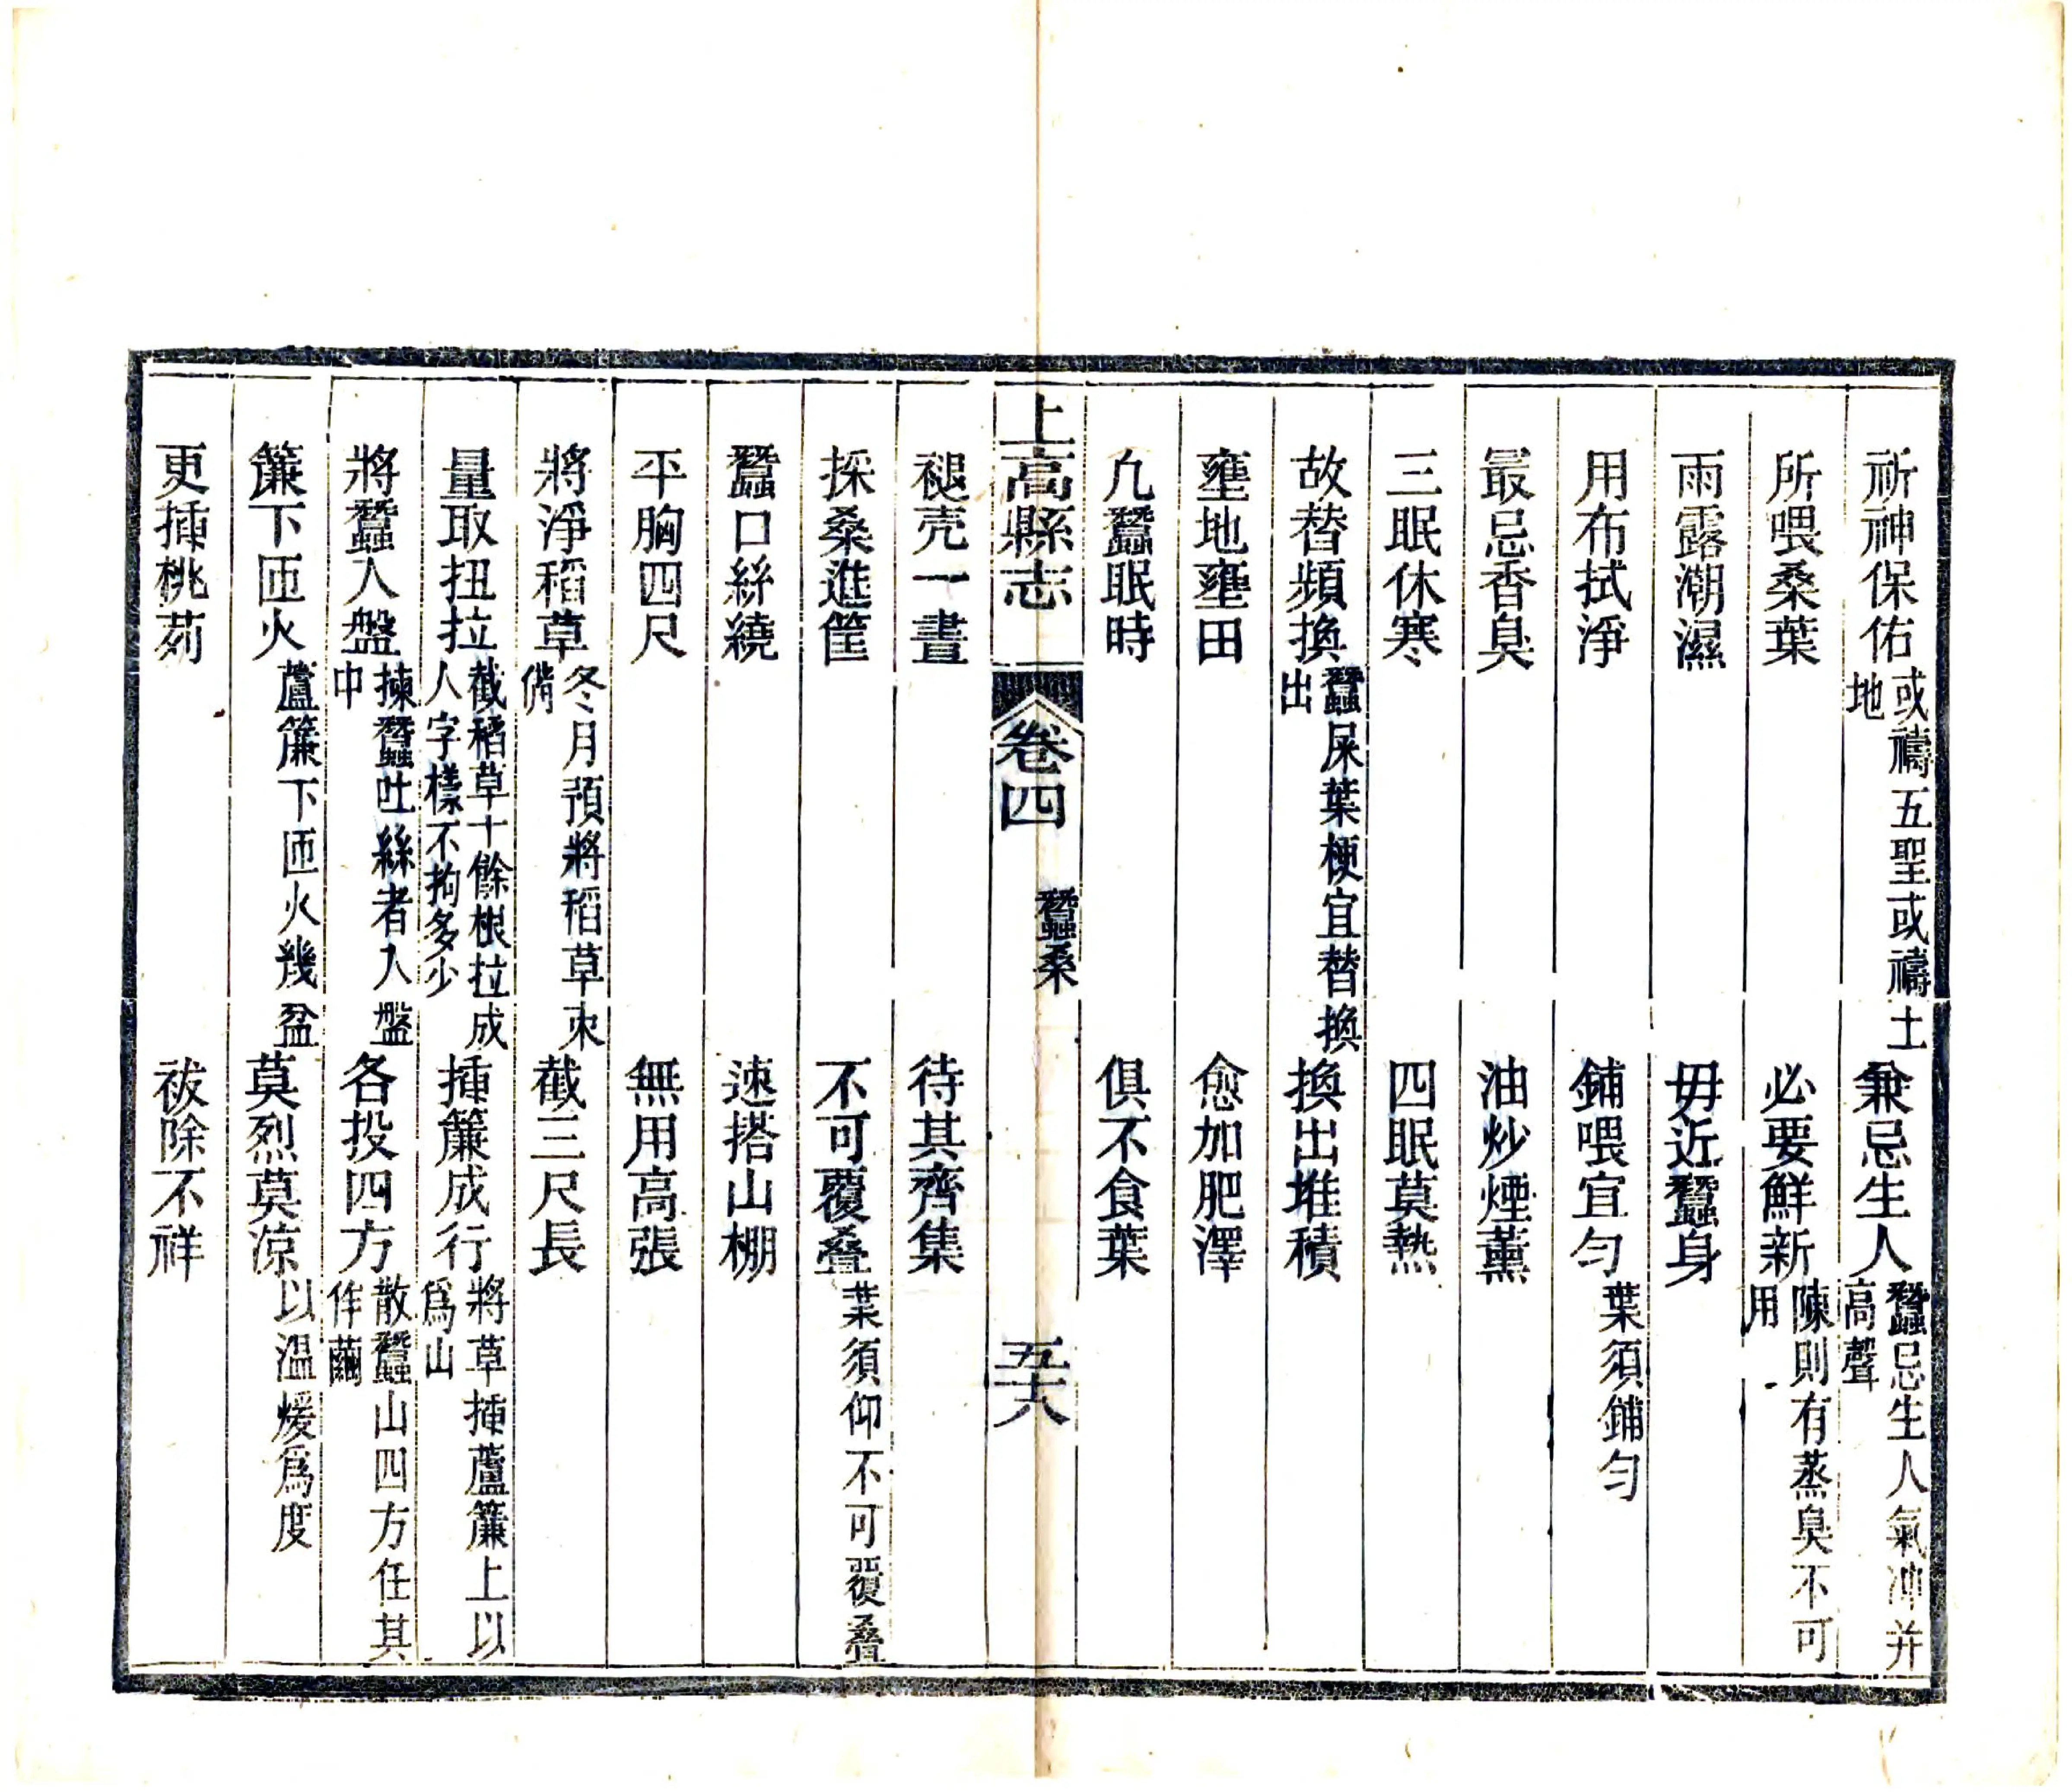 祈神保佑或禱五聖或禱土地兼忌生人蠶忌生人氣冲并高聲
所喂桑葉必要鮮新陳則有蒸臭不可用
雨露潮濕毋近蠶身
用布拭淨鋪喂宜匀葉須鋪匀
最忌香臭油炒煙薰
三眠休寒四眠莫熱
故替頻換蠶屎葉梗宜替換出換出堆積
壅地壅田愈加肥澤
凢蠶眠時俱不食葉
上高縣志 卷四 蠶桑 五十八
褪壳一晝待其齊集
採桑進筐不可覆疊葉須仰不可覆疊
蠶口絲繞速搭山棚
平胸四尺無用高張
將淨稻草冬月預將稻草束備截三尺長
量取扭拉截稻草十餘根拉成人字樣不拘多少揷簾成行將草揷蘆簾上以爲山
將蠶入盤揀蠶吐絲者入盤中各投四方散蠶山四方任其作繭
簾下匝火蘆簾下匝火幾盆莫烈莫凉以溫煖爲度
更揷桃茢祓除不祥